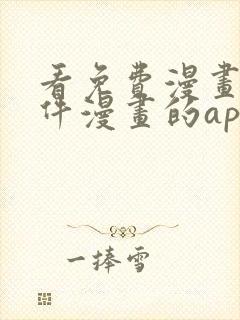 看免費漫畫
件漫畫的ap
一捧雪